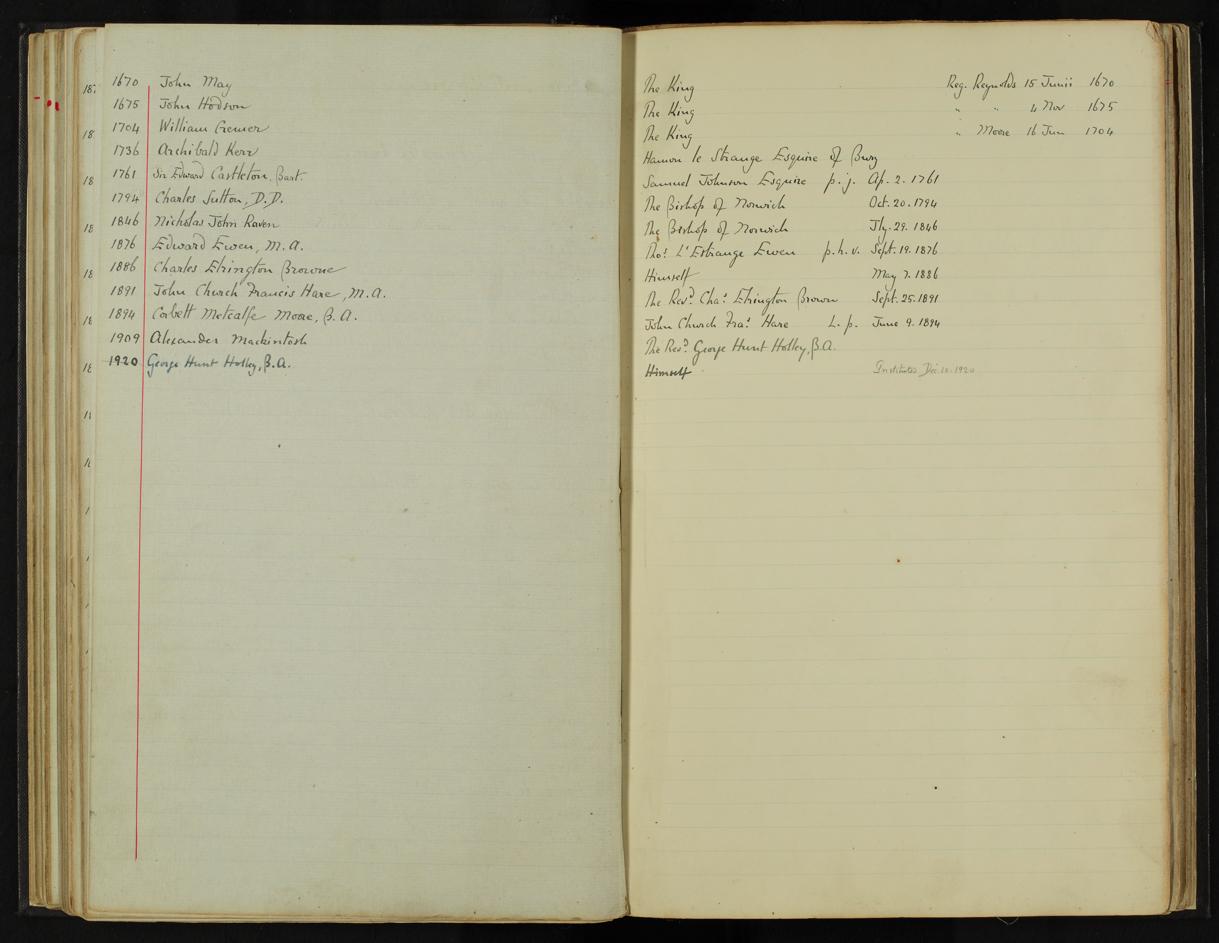 1670 John May
1675 John Hodson
1704 William Cremer
1736 Archibald Kerr
1761 Sir Edward Castleton, Bart.
1794 Charles Sutton, D.D.
1846 Nicholas John Raven
1876 Edward Ewen, M.A.
1886 Charles Elrington Browne
1891 John Church Francis Hare, M.A.
1894 Corbett Metcalfe Moore, B.A.
1909 Alexander Mackintosh
1920 George Hunt Holley, B.A.
The King Reg. Reynolds 15 Junii 1670
The King " " 4 Nov 1675
The King " Moore 16 Jun 1704
Hamon le Strange Esquire of Bury
Samuel Johnson Esquire p. j. Ap. 2. 1761
The Bishop of Norwich Oct. 20. 1794
The Bishop of Norwich Jly. 29. 1846
Thos. L'Estrange Ewen p.h.v. Sept. 19. 1876
Himself May 7. 1886
The Revd. Chas. Elrington Brown Sept. 25. 1891
John Church Fras. Hare L. p. June 9. 1894
The Revd. George Hunt Holley, B.A.
Himself Instituted Dec. 10. 1920